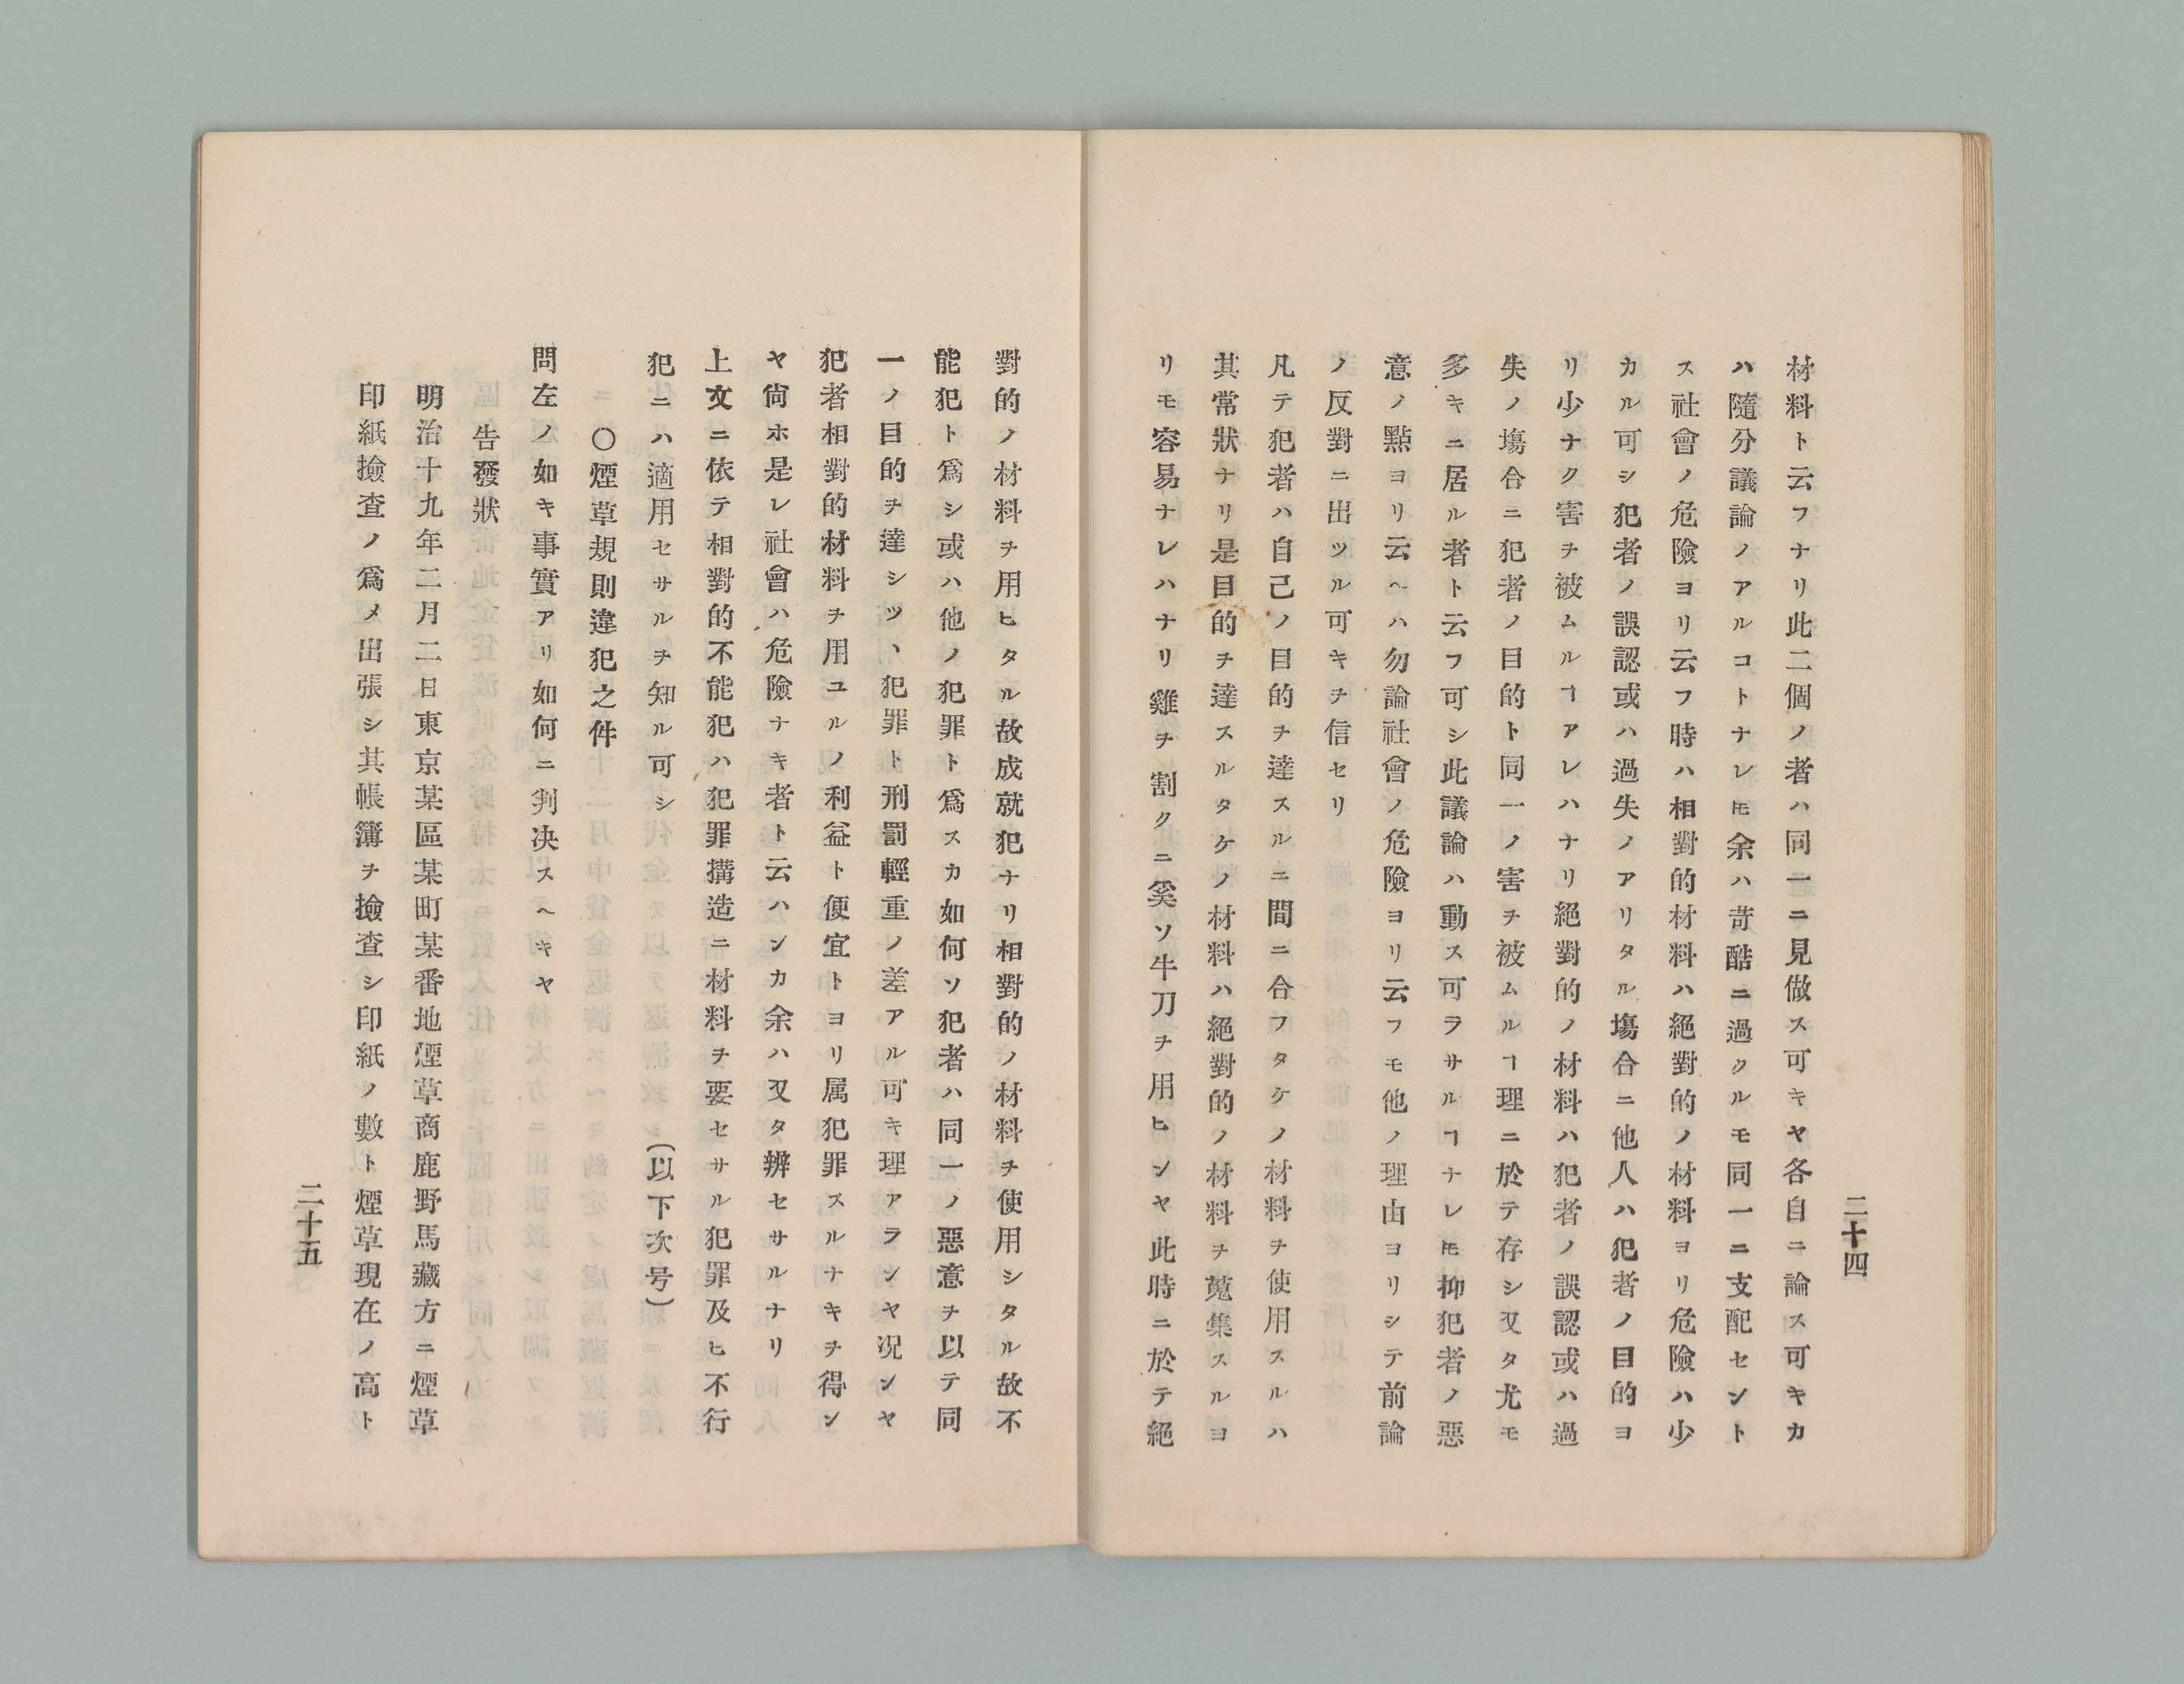 二十四
材料ト云フナリ此二個ノ者ハ同一ニ見做ス可キヤ各自ニ論ス可キカ
ハ隨分議論ノアルコトナレ𪜈余ハ苛酷ニ過クルモ同一ニ支配セント
ス社會ノ危險ヨリ云フ時ハ相對的材料ハ絕對的ノ材料ヨリ危險ハ少
カル可シ犯者ノ誤認或ハ過失ノアリタル塲合ニ他人ハ犯者ノ目的ヨ
リ少ナク害ヲ被ムルヿアレハナリ絕對的ノ材料ハ犯者ノ誤認或ハ過
失ノ塲合ニ犯者ノ目的ト同一ノ害ヲ被ムルヿ理ニ於テ存シ又タ尤モ
多キニ居ル者ト云フ可シ此議論ハ動ス可ラサルヿナレ𪜈抑犯者ノ惡
意ノ點ヨリ云ヘハ勿論社會ノ危險ヨリ云フモ他ノ理由ヨリシテ前論
ノ反對ニ出ツル可キヲ信セリ
凡テ犯者ハ自己ノ目的ヲ達スルニ間ニ合フタケノ材料ヲ使用スルハ
其常狀ナリ是目的ヲ達スルタケノ材料ハ絕對的ノ材料ヲ蒐集スルヨ
リモ容易ナレハナリ雞ヲ割クニ奚ソ牛刀ヲ用ヒンヤ此時ニ於テ絕
對的ノ材料ヲ用ヒタル故成就犯ナリ相對的ノ材料ヲ使用シタル故不
能犯ト爲シ或ハ他ノ犯罪ト爲スカ如何ソ犯者ハ同一ノ惡意ヲ以テ同
一ノ目的ヲ達シツヽ犯罪ト刑罰輕重ノ差アル可キ理アランヤ況ンヤ
犯者相對的材料ヲ用ユルノ利益ト便宜トヨリ属犯罪スルナキヲ得ン
ヤ尙ホ是レ社會ハ危險ナキ者ト云ハンカ余ハ又タ辨セサルナリ
上文ニ依テ相對的不能犯ハ犯罪搆造ニ材料ヲ要セサル犯罪及ヒ不行
犯ニハ適用セサルヲ知ル可シ（以下次号）
〇煙草規則違犯之件
問左ノ如キ事實アリ如何ニ判決スヘキヤ
告發狀
明治十九年二月二日東京某區某町某番地煙草商鹿野馬藏方ニ煙草
印紙撿査ノ爲メ出張シ其帳簿ヲ撿査シ印紙ノ數ト煙草現在ノ高ト
二十五